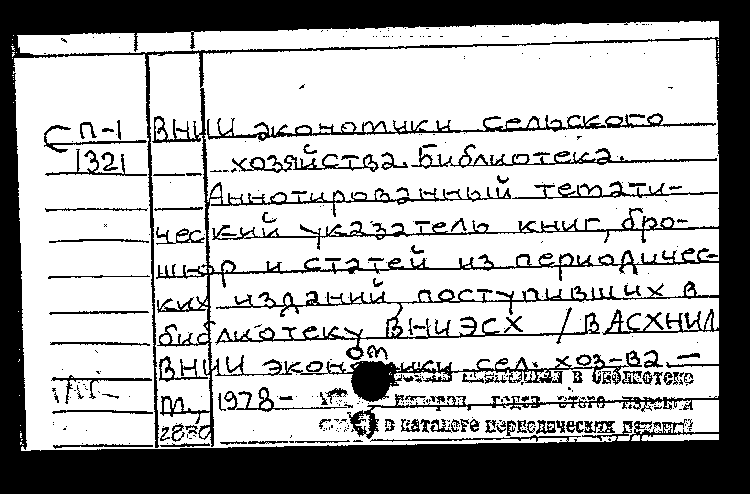 СП-1 ВНИИ экономики сельского
1321 хозяйства. Библиотека.
Аннотированный темати-
ческий указатель книг, бро-
шюр и статей из периодичес-
ких изданий, поступивших в
библиотеку ВНИЭСХ / ВАСХНИЛ
ВНИИ экономики сел. хоз-ва. —
М., 1978-
в библиотеке
номеров, годов этого издания
в каталоге периодических изданий